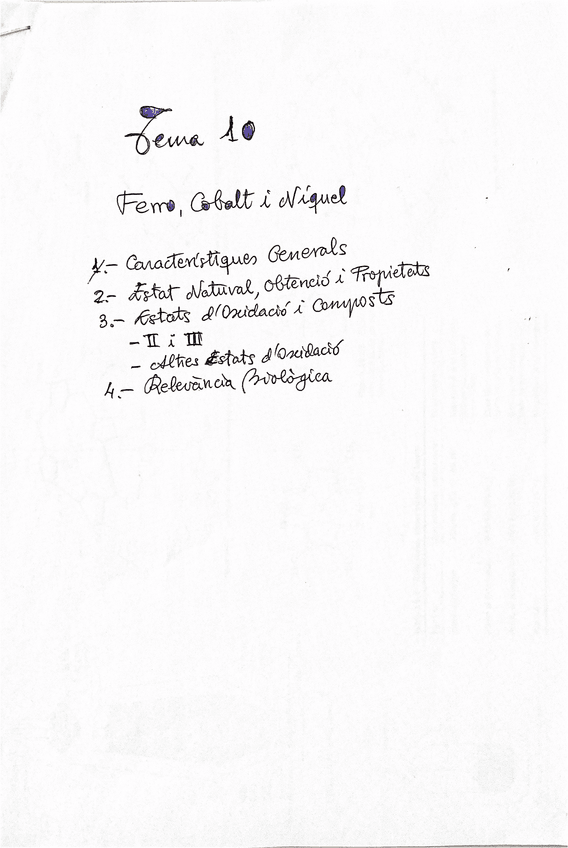 Tema 10
Ferro, Cobalt i Níquel
1.- Característiques Generals
2.- Estat Natural, Obtenció i Propietats
3.- Estats d'Oxidació i Composts
- II i III
- Altres Estats d'Oxidació
4.- Relevància Biològica